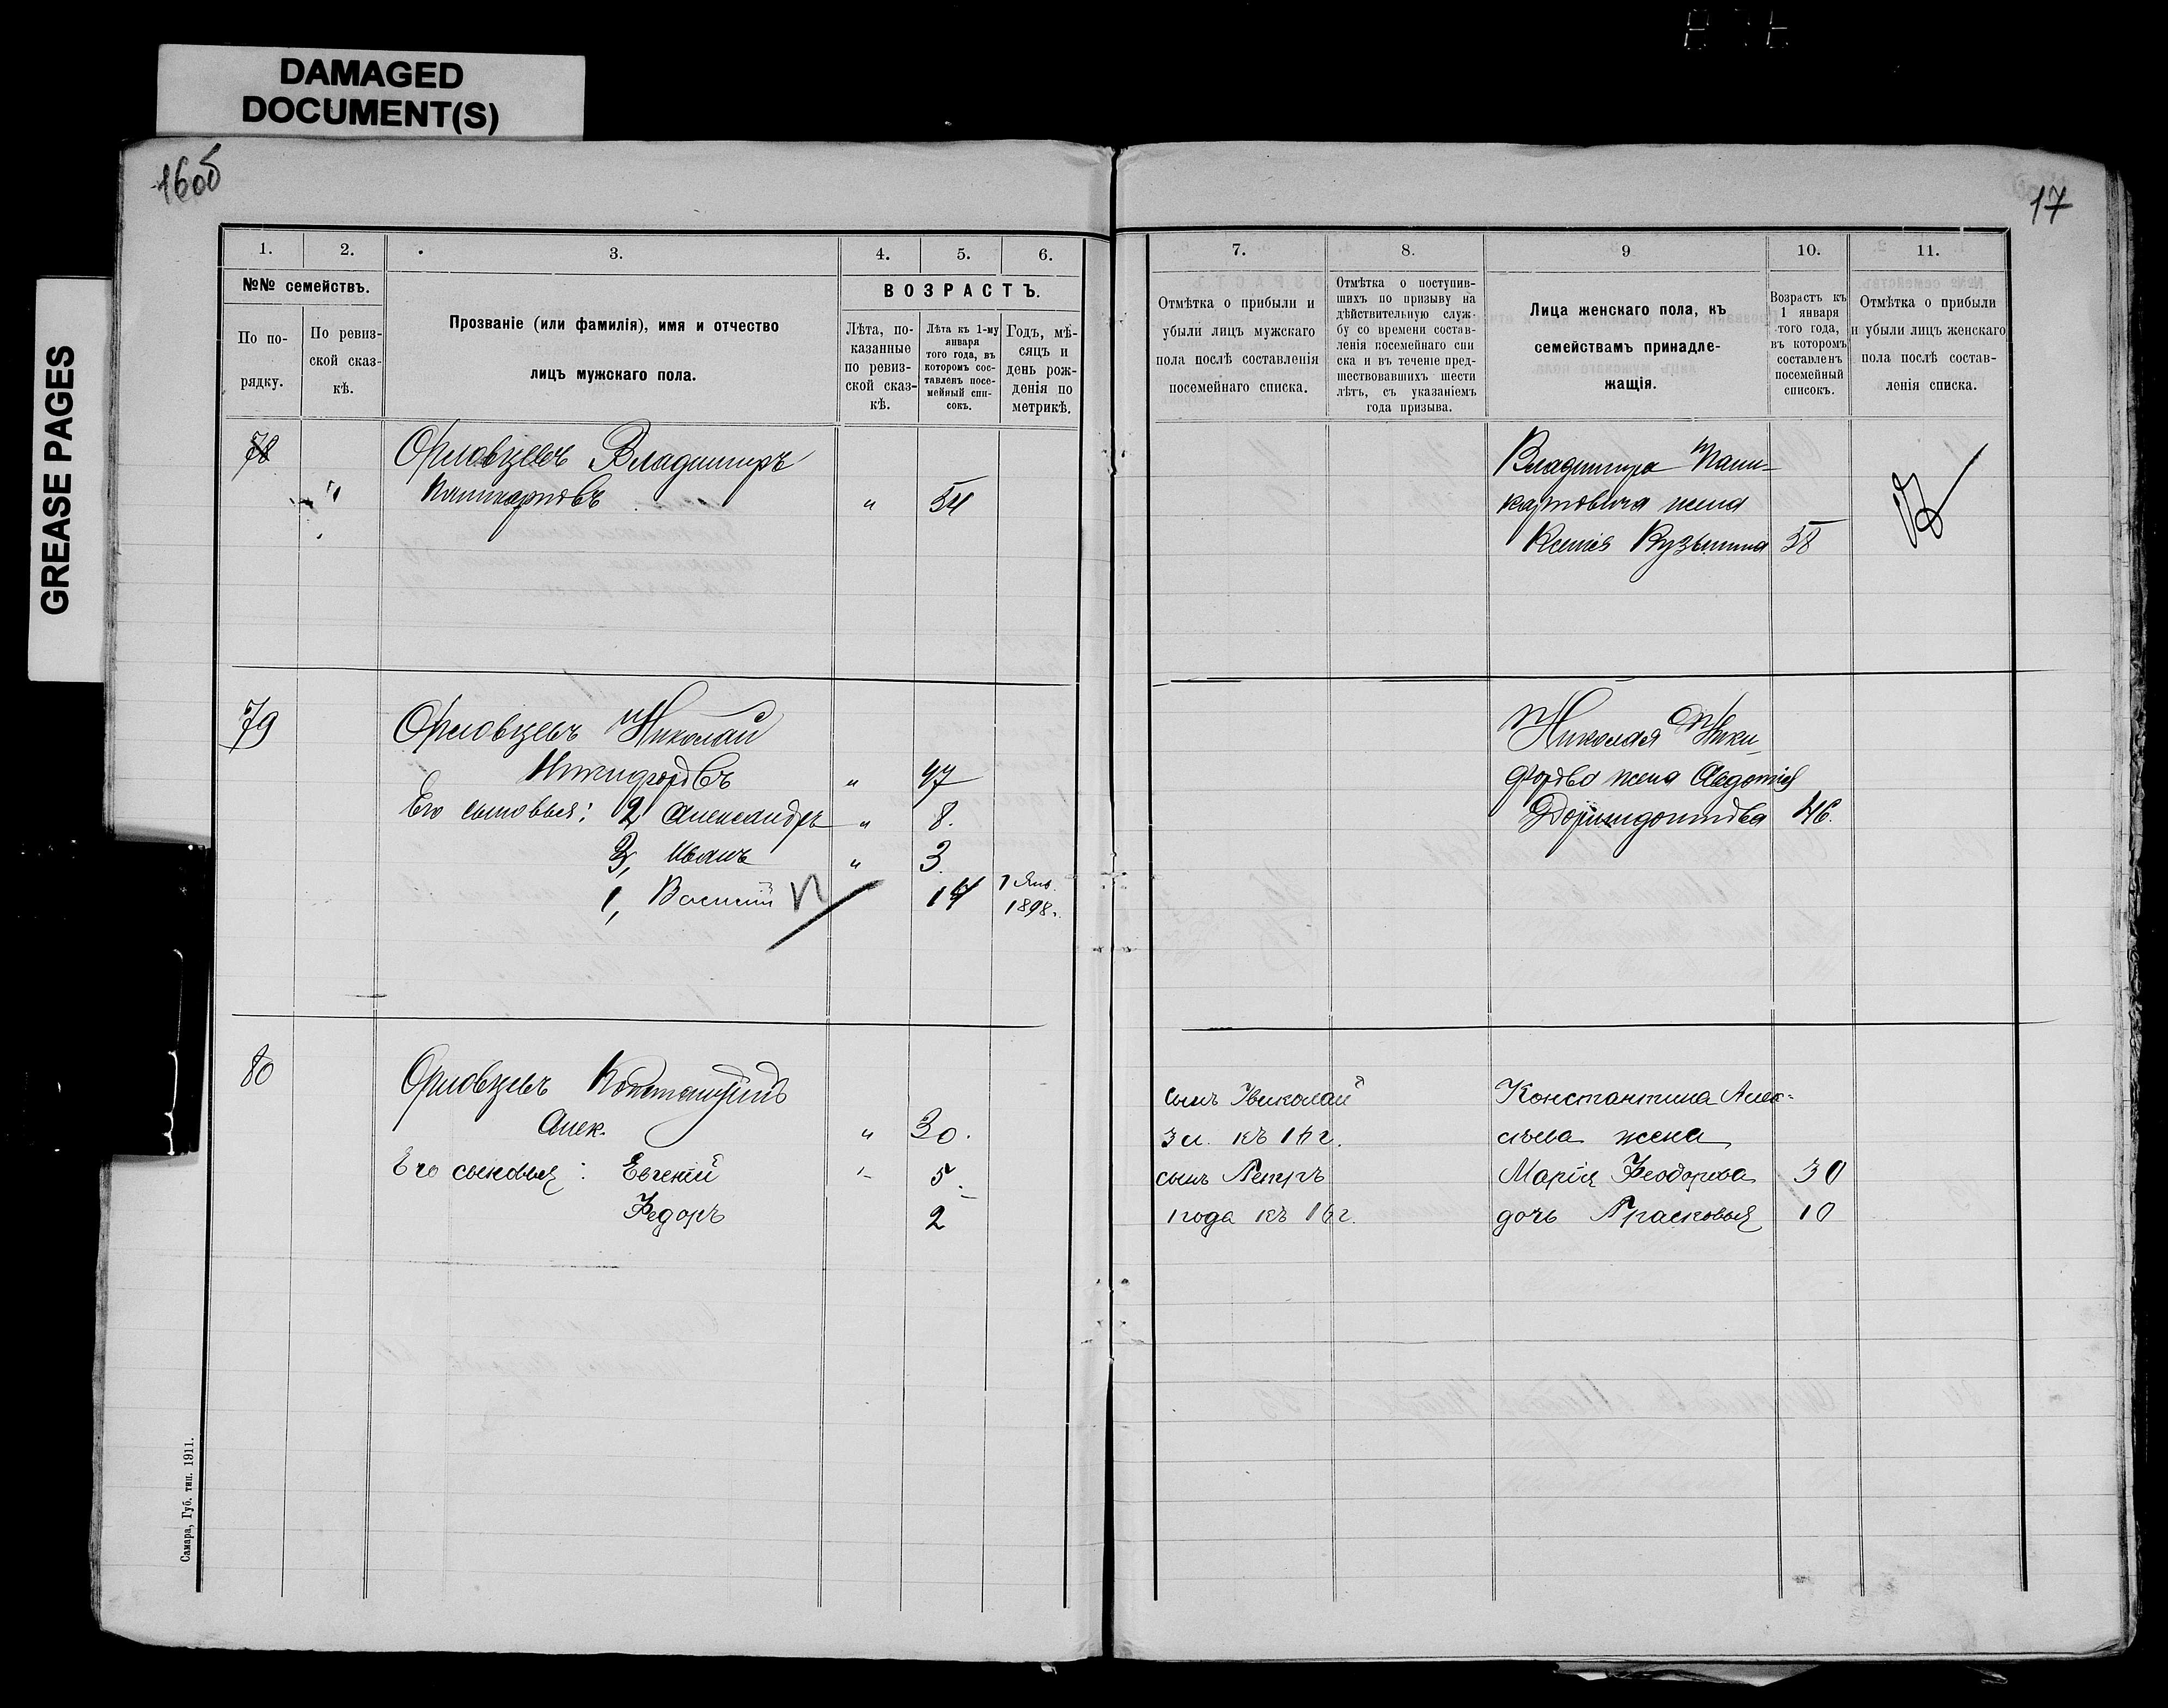 DAMAGED
DOCUMENT(S)
GREASE PAGES
16об
17
1.
2.
3.
4.
5.
6.
№№ семействъ.
По по-
рядку.
По ревиз-
ской сказ-
кѣ.
Прозваніе (или фамилія), имя и отчество
лицъ мужскаго пола.
ВОЗРАСТЪ.
Лѣта, по-
казанные
по ревиз-
ской сказ-
кѣ.
Лѣта къ 1-му
января
того года, въ
которомъ сос-
тавленъ посе-
мейный спи-
сокъ.
Годъ, мѣ-
сяцъ и
день рож-
денія по
метрикѣ.
7.
8.
9
10.
11.
Отмѣтка о прибыли и
убыли лицъ мужскаго
пола послѣ составленія
посемейнаго списка.
Отмѣтка о поступив-
шихъ по призыву на
дѣйствительную служ-
бу со времени состав-
ленія посемейнаго спи
ска и въ теченіе пред-
шествовавшихъ шести
лѣтъ, съ указаніемъ
года призыва.
Лица женскаго пола, къ
семействамъ принадле-
жащія.
Возрастъ къ
1 января
того года,
въ которомъ
составленъ
посемейный
списокъ.
Отмѣтка о прибыли
и убыли лицъ женскаго
пола послѣ состав-
ленія списка.
78 Орловцевъ Владимиръ
" " 54
Владимира
жена
Ксенія Кузьмина 58
79 Орловцевъ Николай
Никифоровъ " 47
Его сыновья: 2, Александръ " 8.
3, Иванъ " 3.
1, Василій 14 1 Янв.
1898 г.
Николая Ники
форова жена Авдотія
Доримидонтова 46.
80 Орловцевъ Константинъ
Алек. " 30.
Его сыновья: Евгеній 5.
Федоръ 2
сынъ Николай
3 л. къ 16 г.
сынъ Петръ
1 года къ 16 г.
Константина Алек-
сѣева жена
Марія Феодорова 30
дочь Прасковья 10
Самара, Губ. тип. 1911.